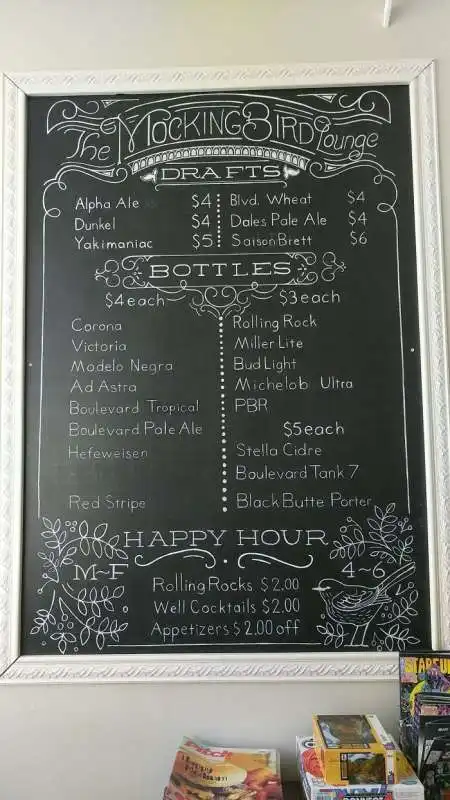 The MockingBird Lounge
DRAFTS
Alpha Ale $4 Blvd. Wheat $4
Dunkel $4 Dales Pale Ale $4
Yakimaniac $5 Saison Brett $6
BOTTLES
$4 each $3 each
Corona Rolling Rock
Victoria Miller Lite
Modelo Negra Bud Light
Ad Astra Michelob Ultra
Boulevard Tropical PBR
Boulevard Pale Ale $5 each
Hefeweisen Stella Cidre
Boulevard Tank 7
Red Stripe Black Butte Porter
HAPPY HOUR
M~F 4~6
Rolling Rocks $2.00
Well Cocktails $2.00
Appetizers $2.00 off